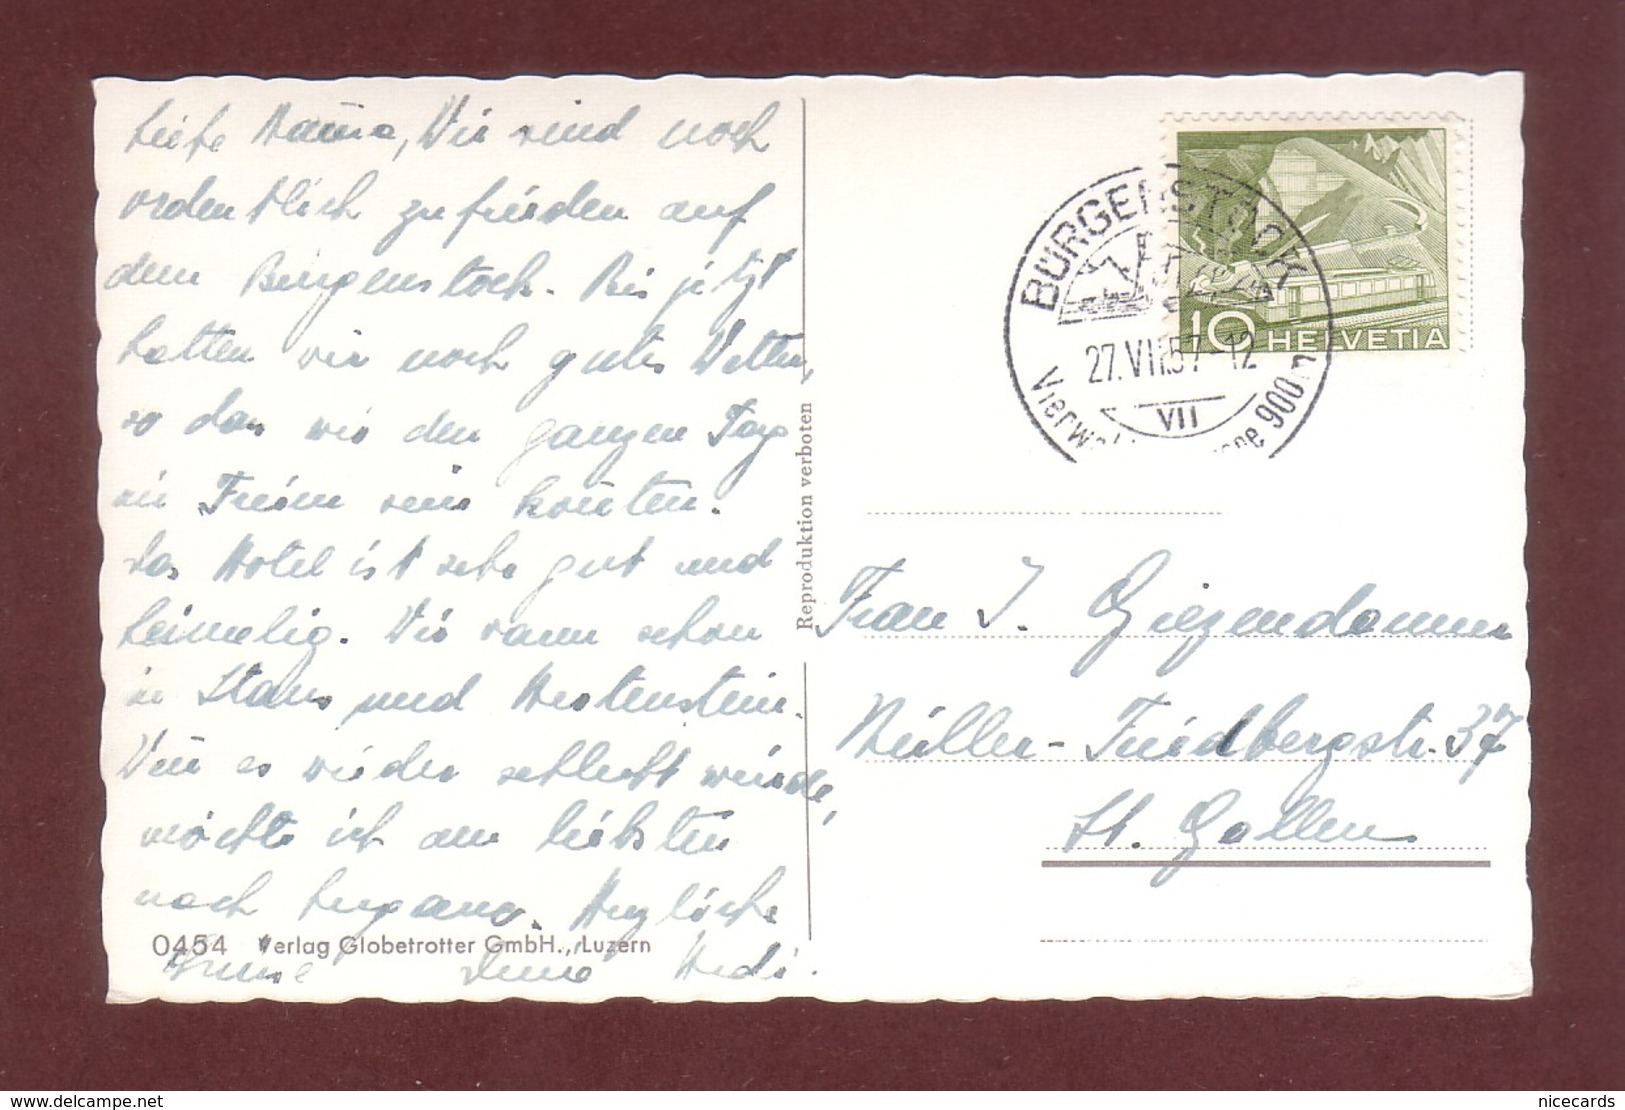 Liebe Mama, Wir sind noch
ordentlich zufrieden auf
dem Bürgenstock. Bis jetzt
hatten wir noch gutes Wetter,
so das wir den ganzen Tag
im Freien sein konten.
Das Hotel ist sehr gut und
heimelig. Wir waren schon
in Stans und Hertenstein.
Wen es wieder schlecht würde,
möchte ich am liebsten
nach Lugano. Herzliche
Grüsse deine Hedi.
0454 Verlag Globetrotter GmbH., Luzern
Reproduktion verboten
10 HELVETIA
BÜRGENSTOCK
27. VII. 57-12
VII
900 m
Frau J. Giezendanner
Müller-Friedbergstr. 37
St. Gallen
www.delcampe.net
nicecards